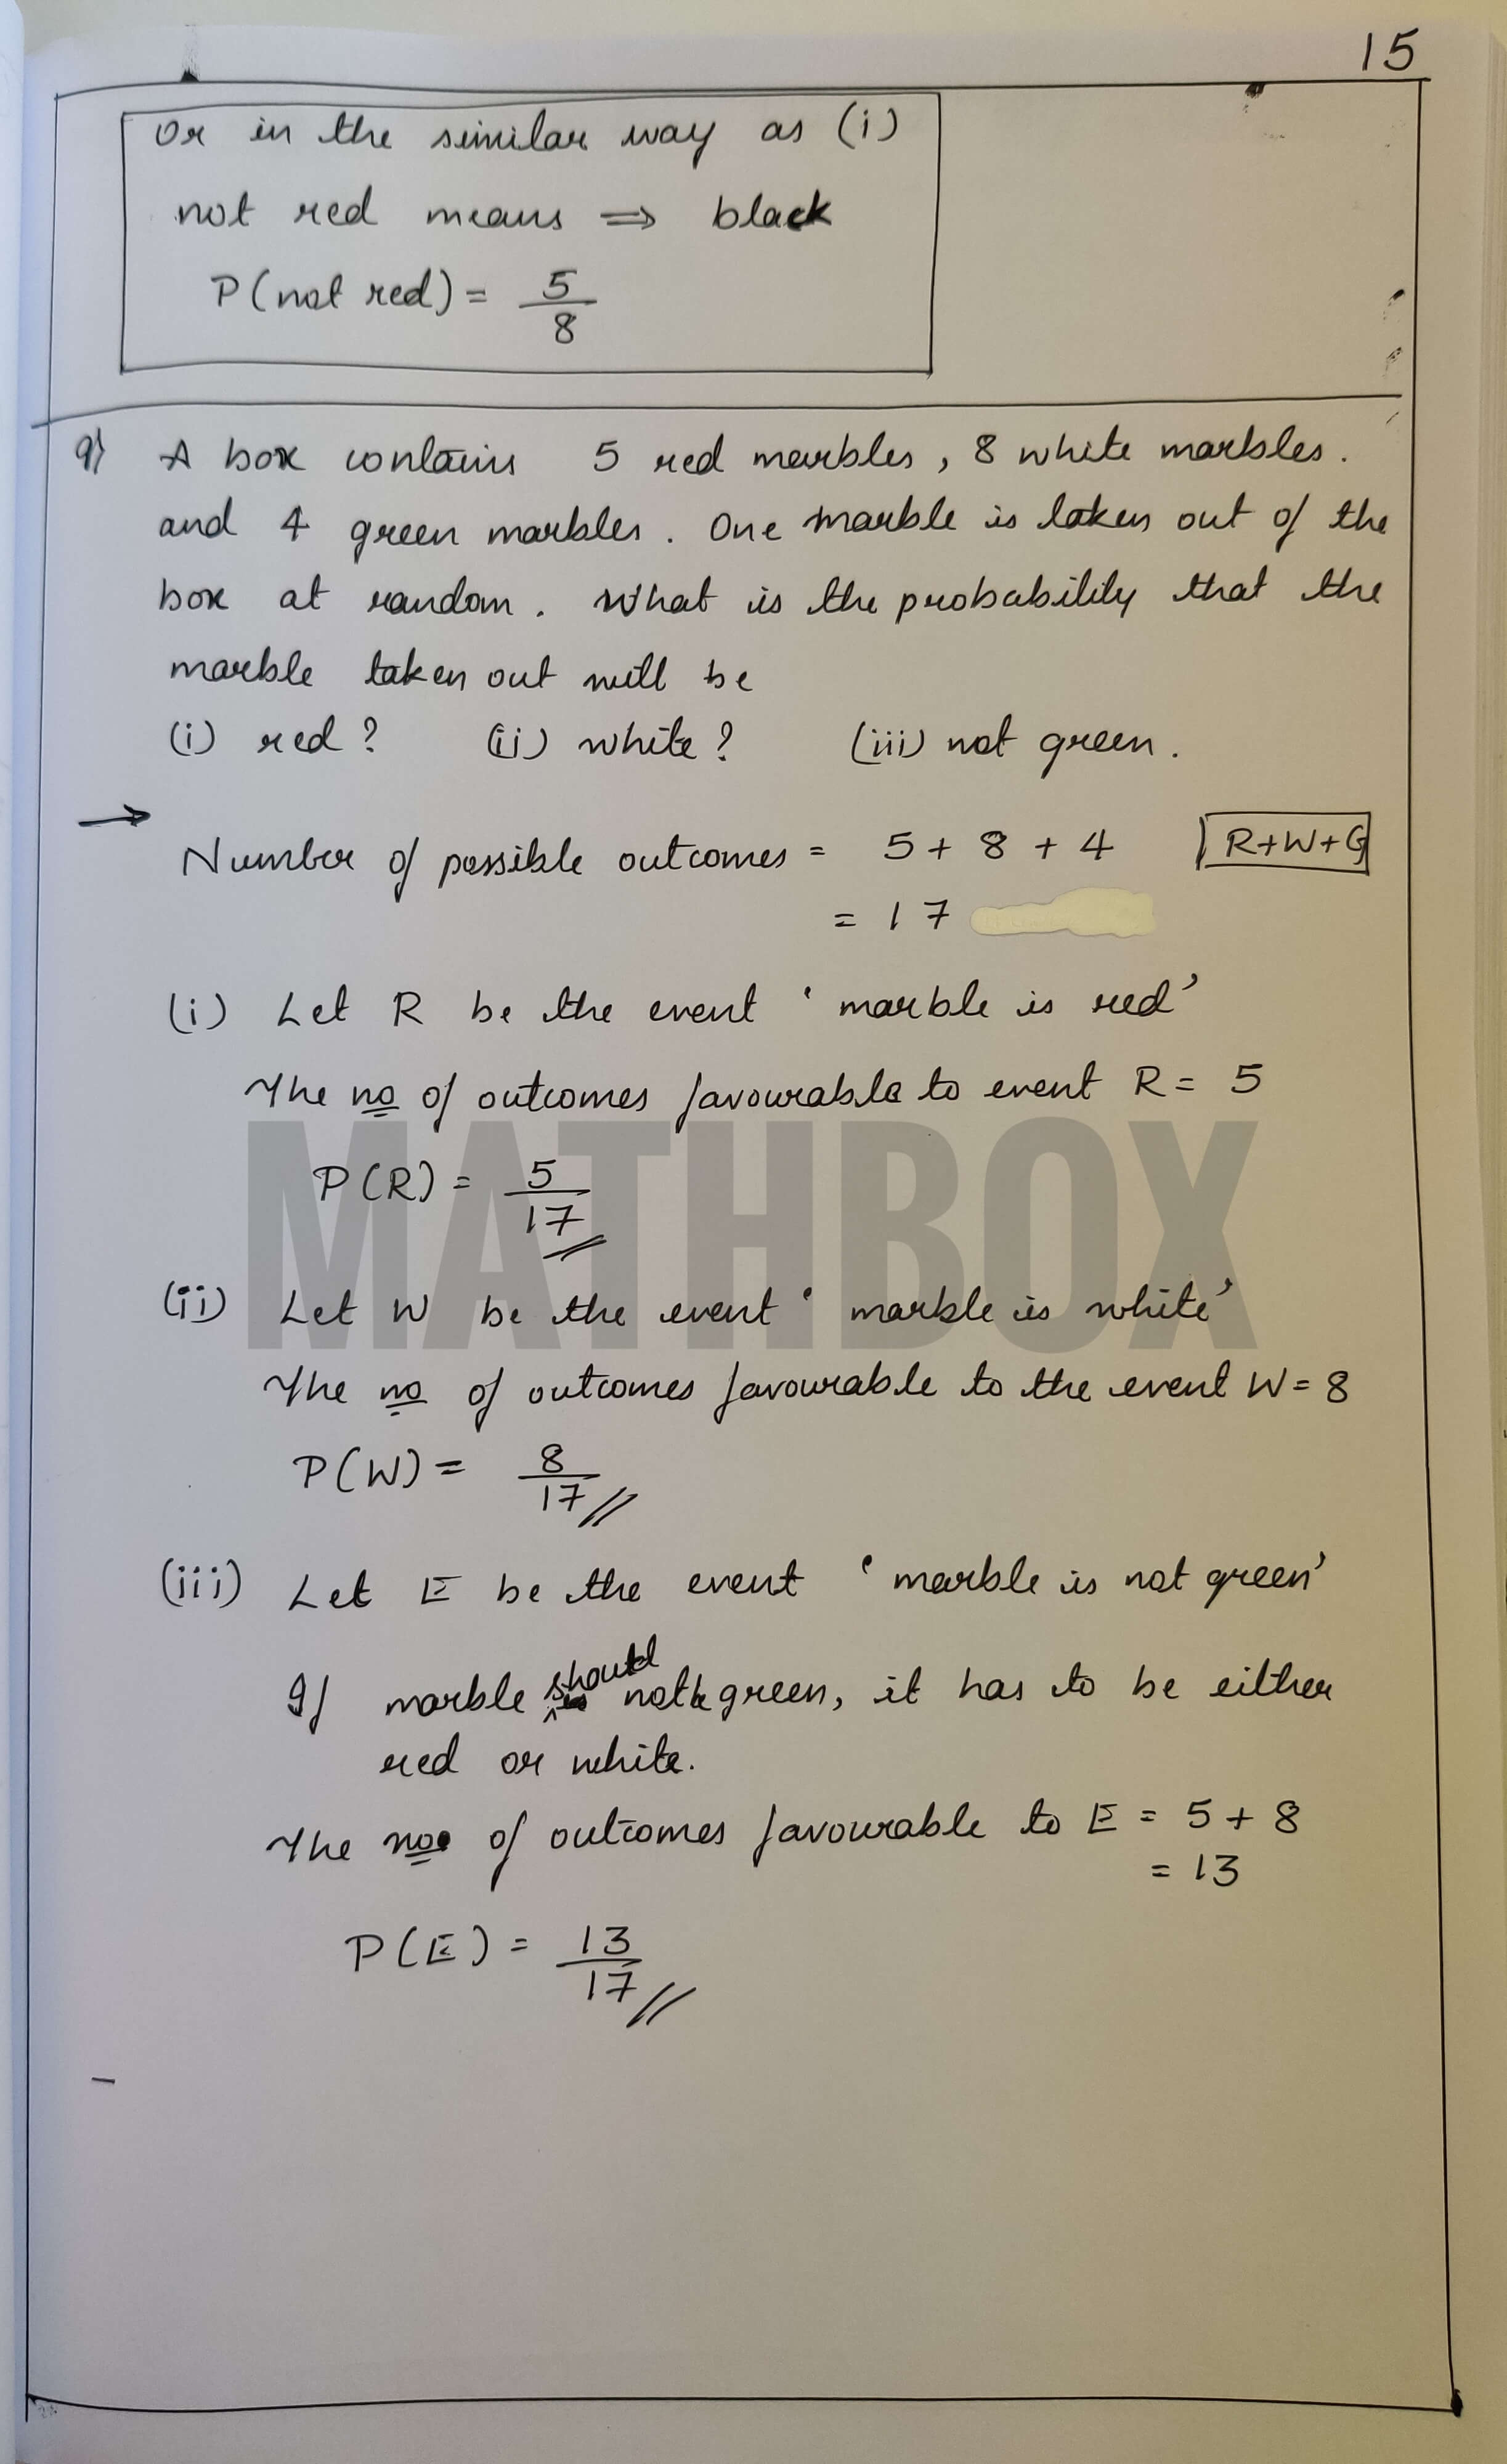 15
Or in the similar way as (i)
not red means ⇒ black
P(not red) = 5/8
9) A box contains 5 red marbles, 8 white marbles.
and 4 green marbles. One marble is taken out of the
box at random. What is the probability that the
marble taken out will be
(i) red? (ii) white? (iii) not green.
→
Number of possible outcomes = 5 + 8 + 4 R+W+G
= 17
(i) Let R be the event 'marble is red'
The no of outcomes favourable to event R = 5
P(R) = 5/17
MATHBOX
(ii) Let W be the event 'marble is white'
The no of outcomes favourable to the event W = 8
P(W) = 8/17
(iii) Let E be the event 'marble is not green'
If marble should not be green, it has to be either
red or white.
The no of outcomes favourable to E = 5 + 8
= 13
P(E) = 13/17